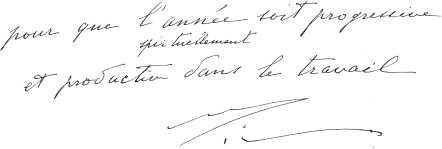 pour que l'année soit progressive
spirtuellement
et production dans le travail